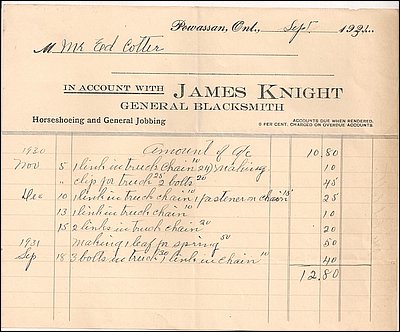 Powassan, Ont., Sept 193
M Mr Ed Cotter
IN ACCOUNT WITH JAMES KNIGHT
GENERAL BLACKSMITH
Horseshoeing and General Jobbing
ACCOUNTS DUE WHEN RENDERED.
PER CENT. CHARGED ON OVERDUE ACCOUNTS.
1930 Amount of a/c 10 80
Nov 5 1 link in truck chain 10 making 10
" clip for truck 25 2 bolts 20 45
Dec 10 1 link in truck chain 10 1 fastener on chain 15 25
13 1 link in truck chain 10 10
15 2 links in truck chain 20 20
1931 making 1 leaf for spring 50 50
Sep 18 3 bolts in truck 30 1 link in chain 10 40
12.80